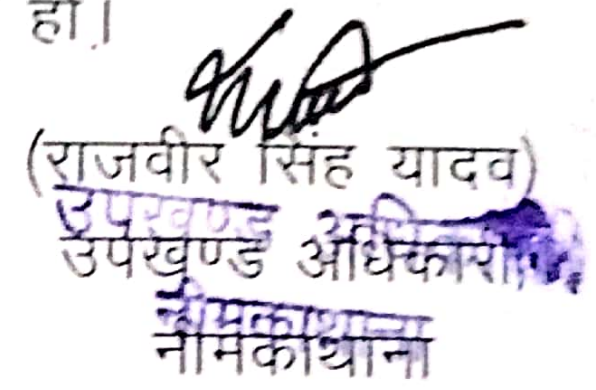 हो।
(राजवीर सिंह यादव)
उपखण्ड अधिकारी
उपखण्ड अधिकारी,
नीमकाथाना
नीमकाथाना